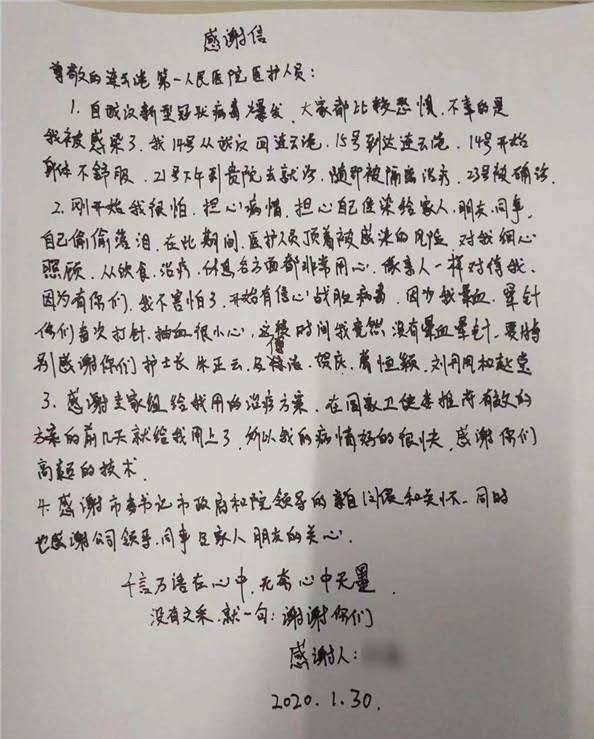 感谢信
尊敬的连云港第一人民医院医护人员：
1. 自武汉新型冠状病毒爆发，大家都比较恐慌，不幸的是
我被感染了，我14号从武汉回连云港，15号到达连云港，19号开始
身体不舒服，21号下午到贵院去就诊，随即被隔离治疗，23号被确诊。
2. 刚开始我很怕，担心病情，担心自己传染给家人、朋友、同事，
自己偷偷落泪，在此期间，医护人员顶着被感染的风险，对我细心
照顾，从饮食、治疗、休息各方面都非常用心，像亲人一样对待我，
因为有你们，我不害怕了，开始有信心战胜病毒，因为我晕血、晕针
你们每次打针、抽血很小心，这段时间我竟然没有晕血晕针，要特
别感谢你们护士长 朱正云、 傅 洁、贺庆、葛恒颖、刘丹凤和
3. 感谢专家组给我用的治疗方案，在国家卫健委推荐有效的
方案的前几天就给我用上了，所以我的病情好的很快，感谢你们
高超的技术。
4. 感谢市委书记市政府和院领导的亲自问候和关怀，同时
也感谢公司领导、同事及家人朋友的关心。
千言万语在心中，无奈心中无墨，
没有文采，就一句：谢谢你们
感谢人：
2020.1.30.